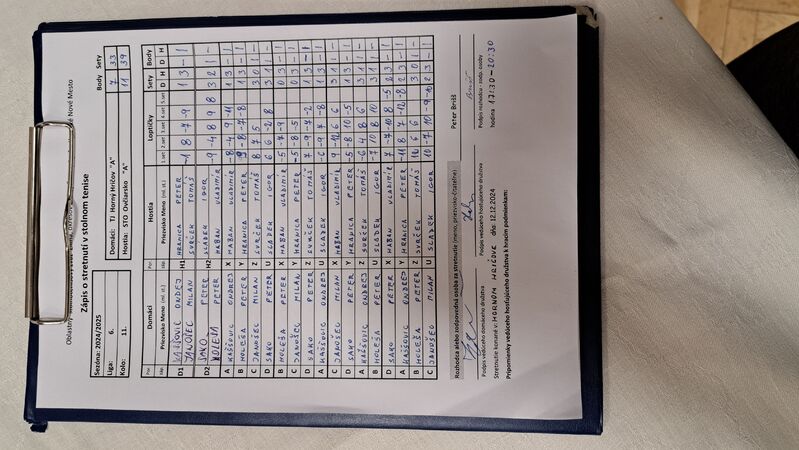 Nové Mesto
Zápis o stretnutí v stolnom tenise
Sezóna: 2024/2025
Liga: 6.
Kolo: 11.
Body Sety
Domáci: TJ Horný Hričov "A" 7 33
Hostia: STO Ovčiarsko "A" 11 39
Domáci Hostia Loptičky Sety Body
Por. záp. Priezvisko Meno (ml. st.) Por. záp. Priezvisko Meno (ml. st.) 1.set 2.set 3.set 4.set 5.set D H D H
D1 KAŠŠOVIC ONDREJ H1 HRANICA PETER -1 8 -7 -9 1 3 - 1
JANOŠEC MILAN SVRČEK TOMÁŠ
D2 SAKO PETER H2 SLADEK IGOR -9 -4 8 9 8 3 2 1 -
HOLEŠA PETER MABAN VLADIMÍR
A KAŠŠOVIC ONDREJ X MABAN VLADIMÍR -8 -4 9 -11 1 3 - 1
B HOLEŠA PETER Y HRANICA PETER -8 -7 -8 1 3 - 1
C JANOŠEC MILAN Z SVRČEK TOMÁŠ 8 7 5 3 0 1 -
D SAKO PETER U SLADEK IGOR 6 6 -2 8 3 1 1 -
B HOLEŠA PETER X MABAN VLADIMÍR -5 -7 -9 0 3 - 1
C JANOŠEC MILAN Y HRANICA PETER -5 -8 -5 0 3 - 1
D SAKO PETER Z SVRČEK TOMÁŠ 7 -9 -7 -2 1 3 - 1
A KAŠŠOVIC ONDREJ U SLADEK IGOR -6 -9 7 -8 1 3 - 1
C JANOŠEC MILAN X MABAN VLADIMÍR 9 -12 6 6 3 1 1 -
D SAKO PETER Y HRANICA PETER -5 -8 10 -5 1 3 - 1
A KAŠŠOVIC ONDREJ Z SVRČEK TOMÁŠ -6 4 8 6 3 1 1 -
B HOLEŠA PETER U SLADEK IGOR -7 10 8 10 3 1 1 -
D SAKO PETER X MABAN VLADIMÍR 7 -7 10 8 -5 2 3 - 1
A KAŠŠOVIC ONDREJ Y HRANICA PETER -11 8 7 -12 -8 2 3 - 1
B HOLEŠA PETER Z SVRČEK TOMÁŠ 12 6 6 3 0 1 -
C JANOŠEC MILAN U SLADEK IGOR 10 -7 10 -9 -10 2 3 - 1
Rozhodca alebo zodpovedná osoba za stretnutie (meno, priezvisko-čitateľne) Peter Brišš
Podpis vedúceho domáceho družstva Podpis vedúceho hosťujúceho družstva Podpis rozhodcu - zodp. osoby
Stretnutie konané v: HORNOM HRIČOVE dňa: 12.12.2024 hodina 17:30-20:30
Pripomienky vedúceho hosťujúceho družstva k hracím podmienkam: